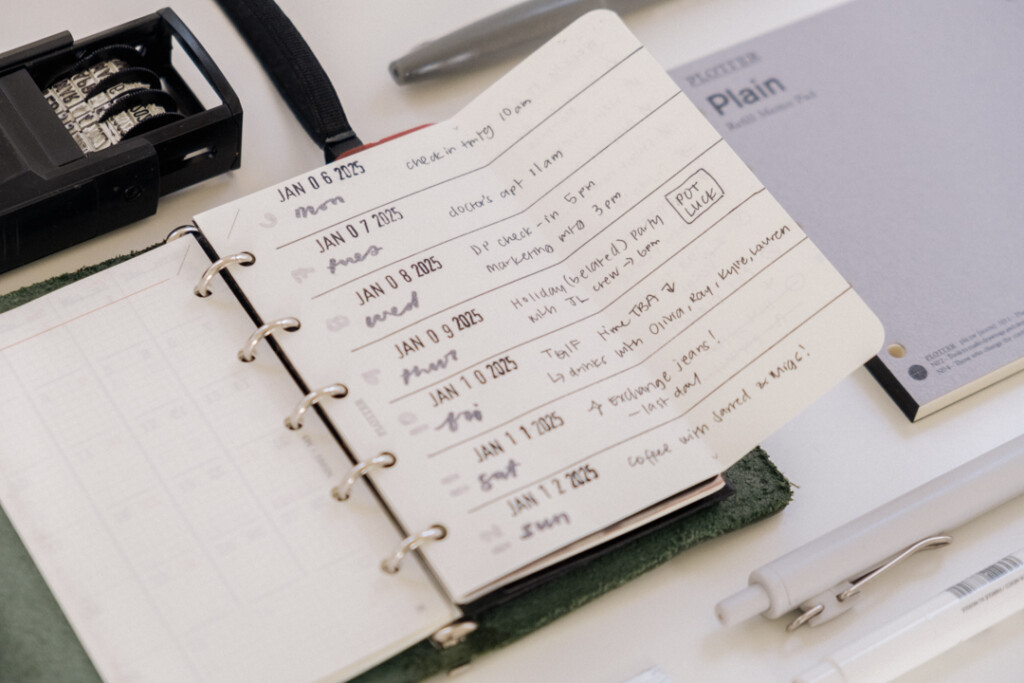 JAN 0 6 2025
mon
check in mtg 10am
JAN 0 7 2025
tues
doctor's apt 11am
JAN 0 8 2025
wed
DP check-in 5pm
marketing mtg 3pm
JAN 0 9 2025
thur
Holiday (belated) party
with JL crew → 6pm
POT
LUCK
JAN 1 0 2025
fri
TGIF time TBA
↳ drinks with Olivia, Ray, Kylie, Lauren
JAN 1 1 2025
sat
→ exchange jeans!
- last day
JAN 1 2 2025
sun
coffee with Jarred
PLOTTER
PLOTTER
Plain
Refill Memo Pad
PLOTTER